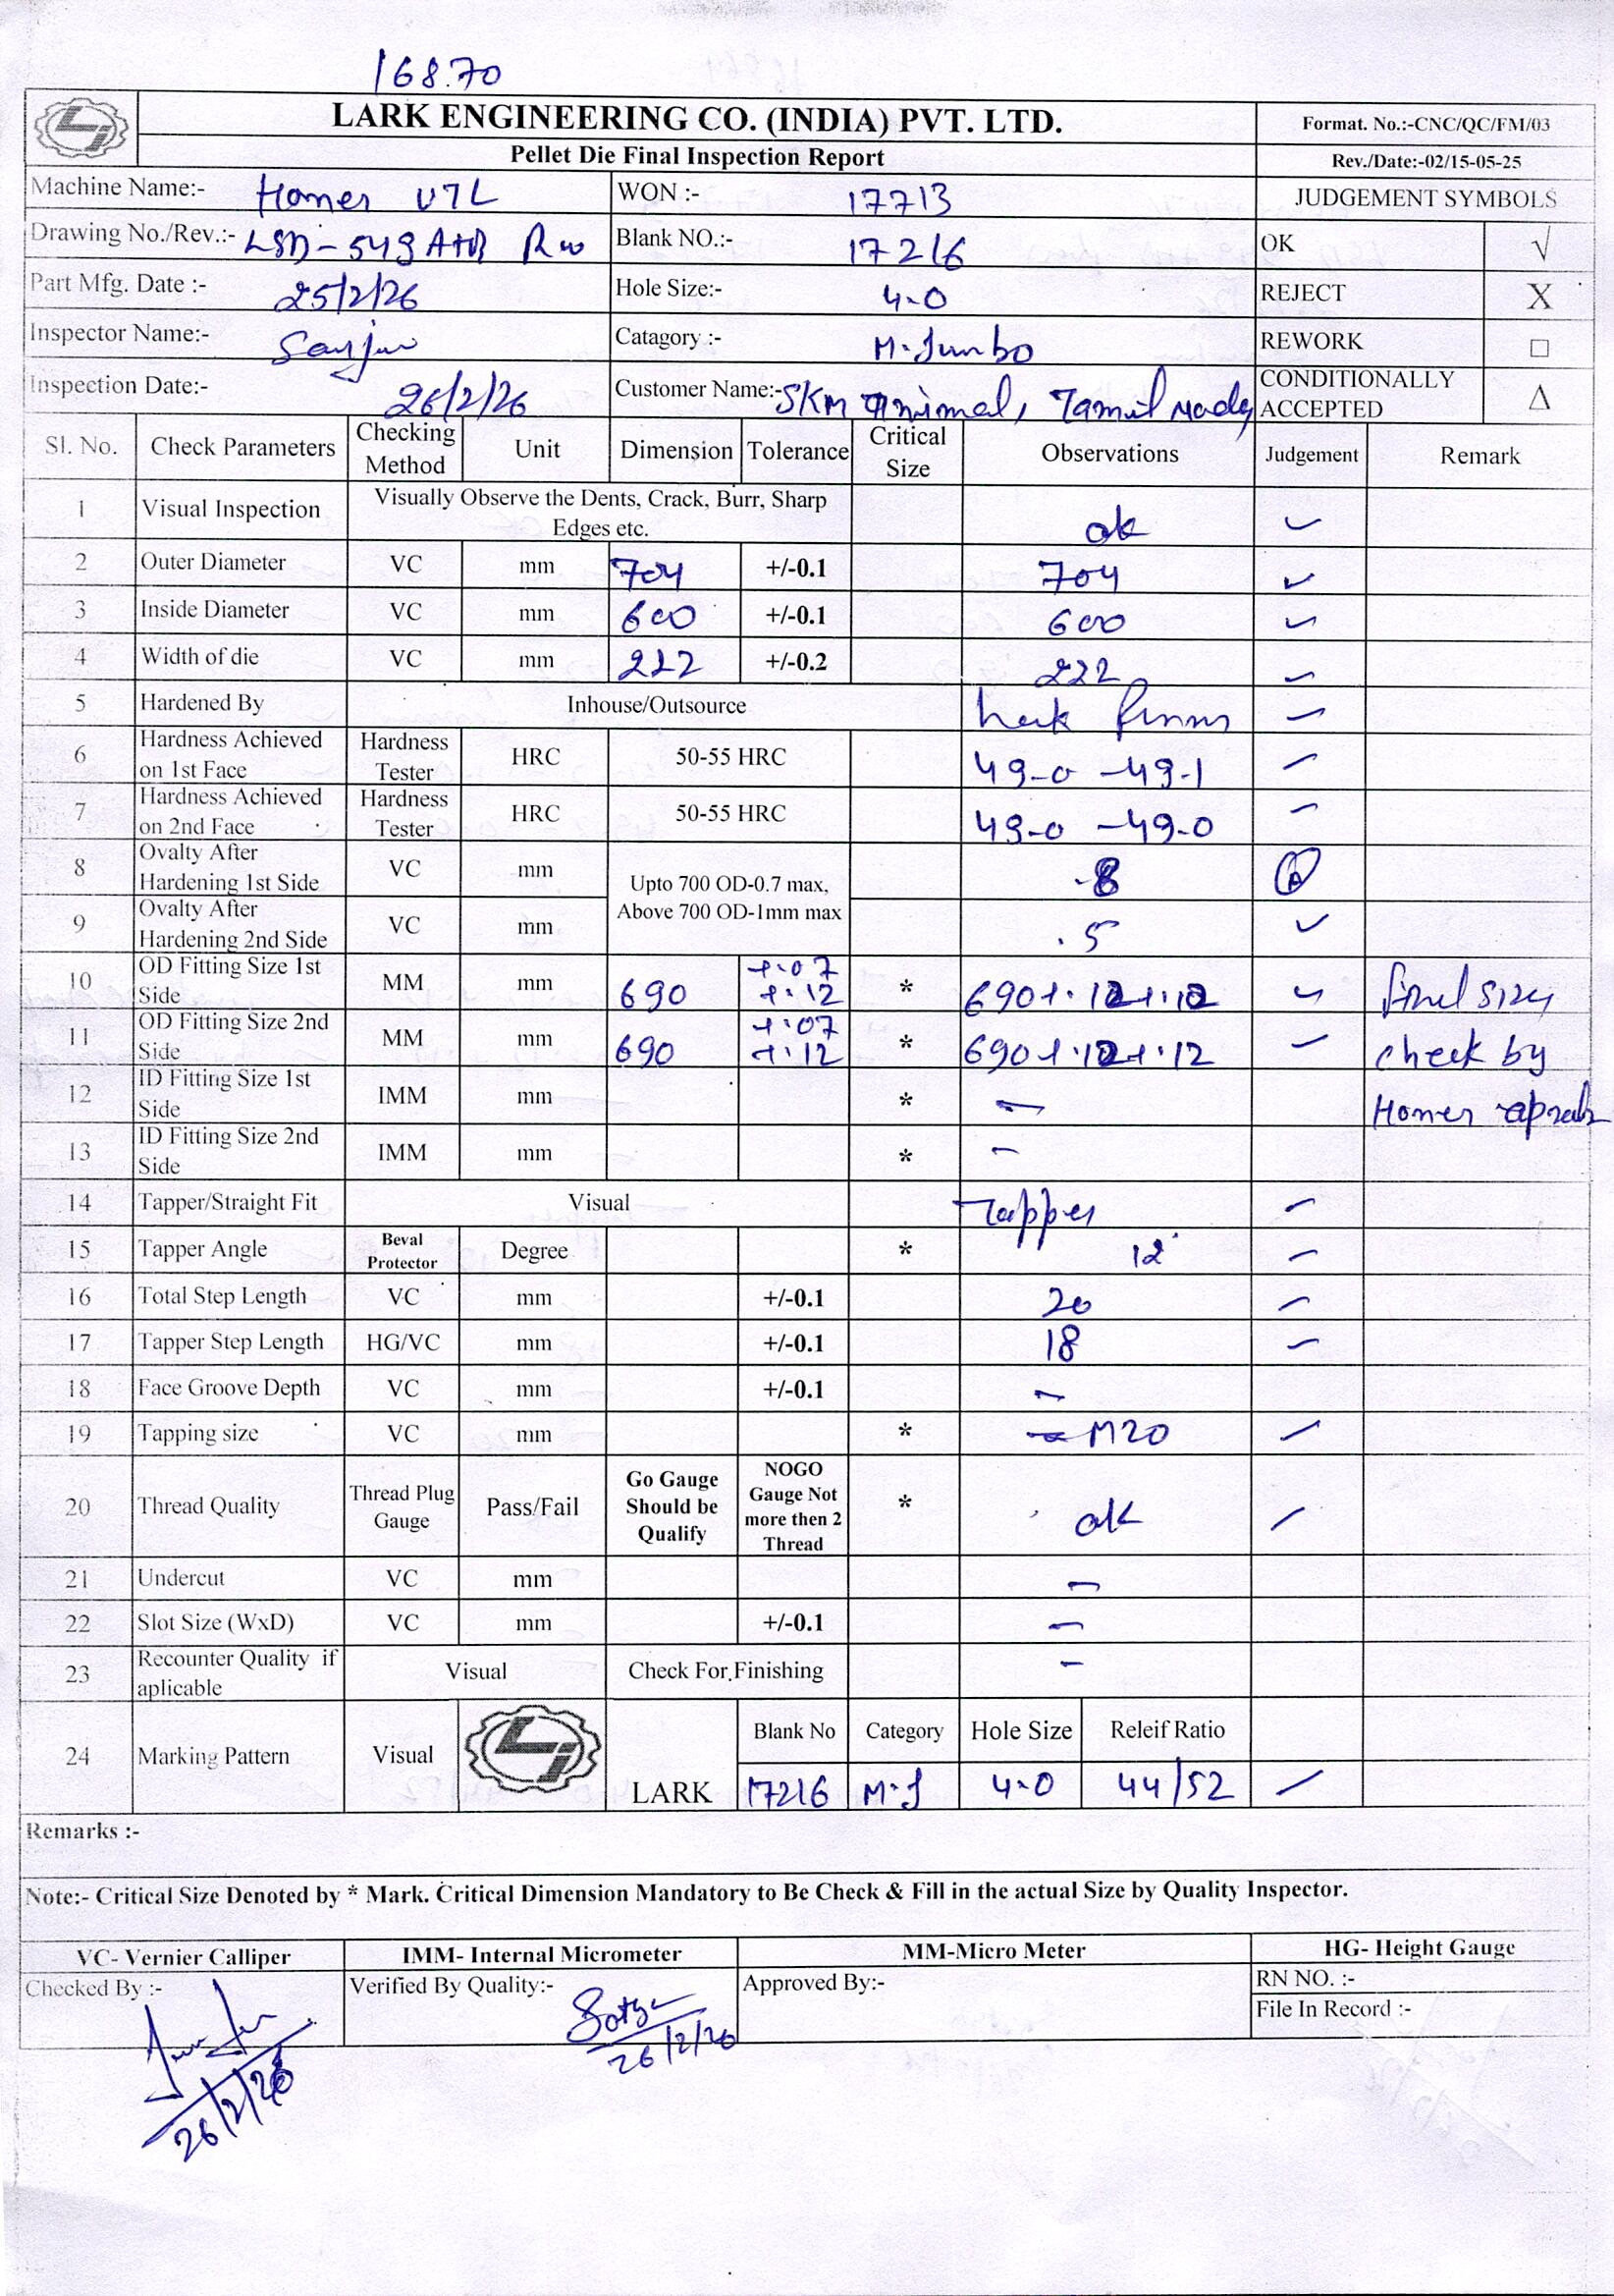 168.70
LARK ENGINEERING CO. (INDIA) PVT. LTD.
Format. No.:-CNC/QC/FM/03
Pellet Die Final Inspection Report
Rev./Date:-02/15-05-25
Machine Name:- WON :- 17713 JUDGEMENT SYMBOLS
Drawing No./Rev.:- Blank NO.:- 17216 OK √
Part Mfg. Date :- 25/2/26 Hole Size:- 4.0 REJECT X
Inspector Name:- Catagory :- M.Jumbo REWORK □
Inspection Date:- 26/2/26 Customer Name:- SKM animal, Tamil nadu CONDITIONALLY ACCEPTED Δ
Sl. No. Check Parameters Checking Method Unit Dimension Tolerance Critical Size Observations Judgement Remark
1 Visual Inspection Visually Observe the Dents, Crack, Burr, Sharp Edges etc. ok ✓
2 Outer Diameter VC mm 704 +/-0.1 704 ✓
3 Inside Diameter VC mm 600 +/-0.1 600 ✓
4 Width of die VC mm 222 +/-0.2 222 ✓
5 Hardened By Inhouse/Outsource ✓
6 Hardness Achieved on 1st Face Hardness Tester HRC 50-55 HRC 49-0 -49-1 ✓
7 Hardness Achieved on 2nd Face Hardness Tester HRC 50-55 HRC 49-0 -49-0 ✓
8 Ovalty After Hardening 1st Side VC mm Upto 700 OD-0.7 max, Above 700 OD-1mm max .8
9 Ovalty After Hardening 2nd Side VC mm .5 ✓
10 OD Fitting Size 1st Side MM mm 690 +.07 +.12 * 690+.12+.12 ✓ final size
11 OD Fitting Size 2nd Side MM mm 690 +.07 +.12 * 690+.12+.12 ✓ check by
12 ID Fitting Size 1st Side IMM mm * —
13 ID Fitting Size 2nd Side IMM mm * -
14 Tapper/Straight Fit Visual Tapper ✓
15 Tapper Angle Beval Protector Degree * 12° ✓
16 Total Step Length VC mm +/-0.1 20 ✓
17 Tapper Step Length HG/VC mm +/-0.1 18 ✓
18 Face Groove Depth VC mm +/-0.1 -
19 Tapping size VC mm * M20 ✓
20 Thread Quality Thread Plug Gauge Pass/Fail Go Gauge Should be Qualify NOGO Gauge Not more then 2 Thread * ok ✓
21 Undercut VC mm -
22 Slot Size (WxD) VC mm +/-0.1 -
23 Recounter Quality if aplicable Visual Check For Finishing -
24 Marking Pattern Visual LARK Blank No Category Hole Size Releif Ratio
17216 M.J 4.0 44/52 ✓
Remarks :-
Note:- Critical Size Denoted by * Mark. Critical Dimension Mandatory to Be Check & Fill in the actual Size by Quality Inspector.
VC- Vernier Calliper IMM- Internal Micrometer MM-Micro Meter HG- Height Gauge
Checked By :- Verified By Quality:- Approved By:- RN NO. :-
File In Record :-
26/2/26
26/2/26